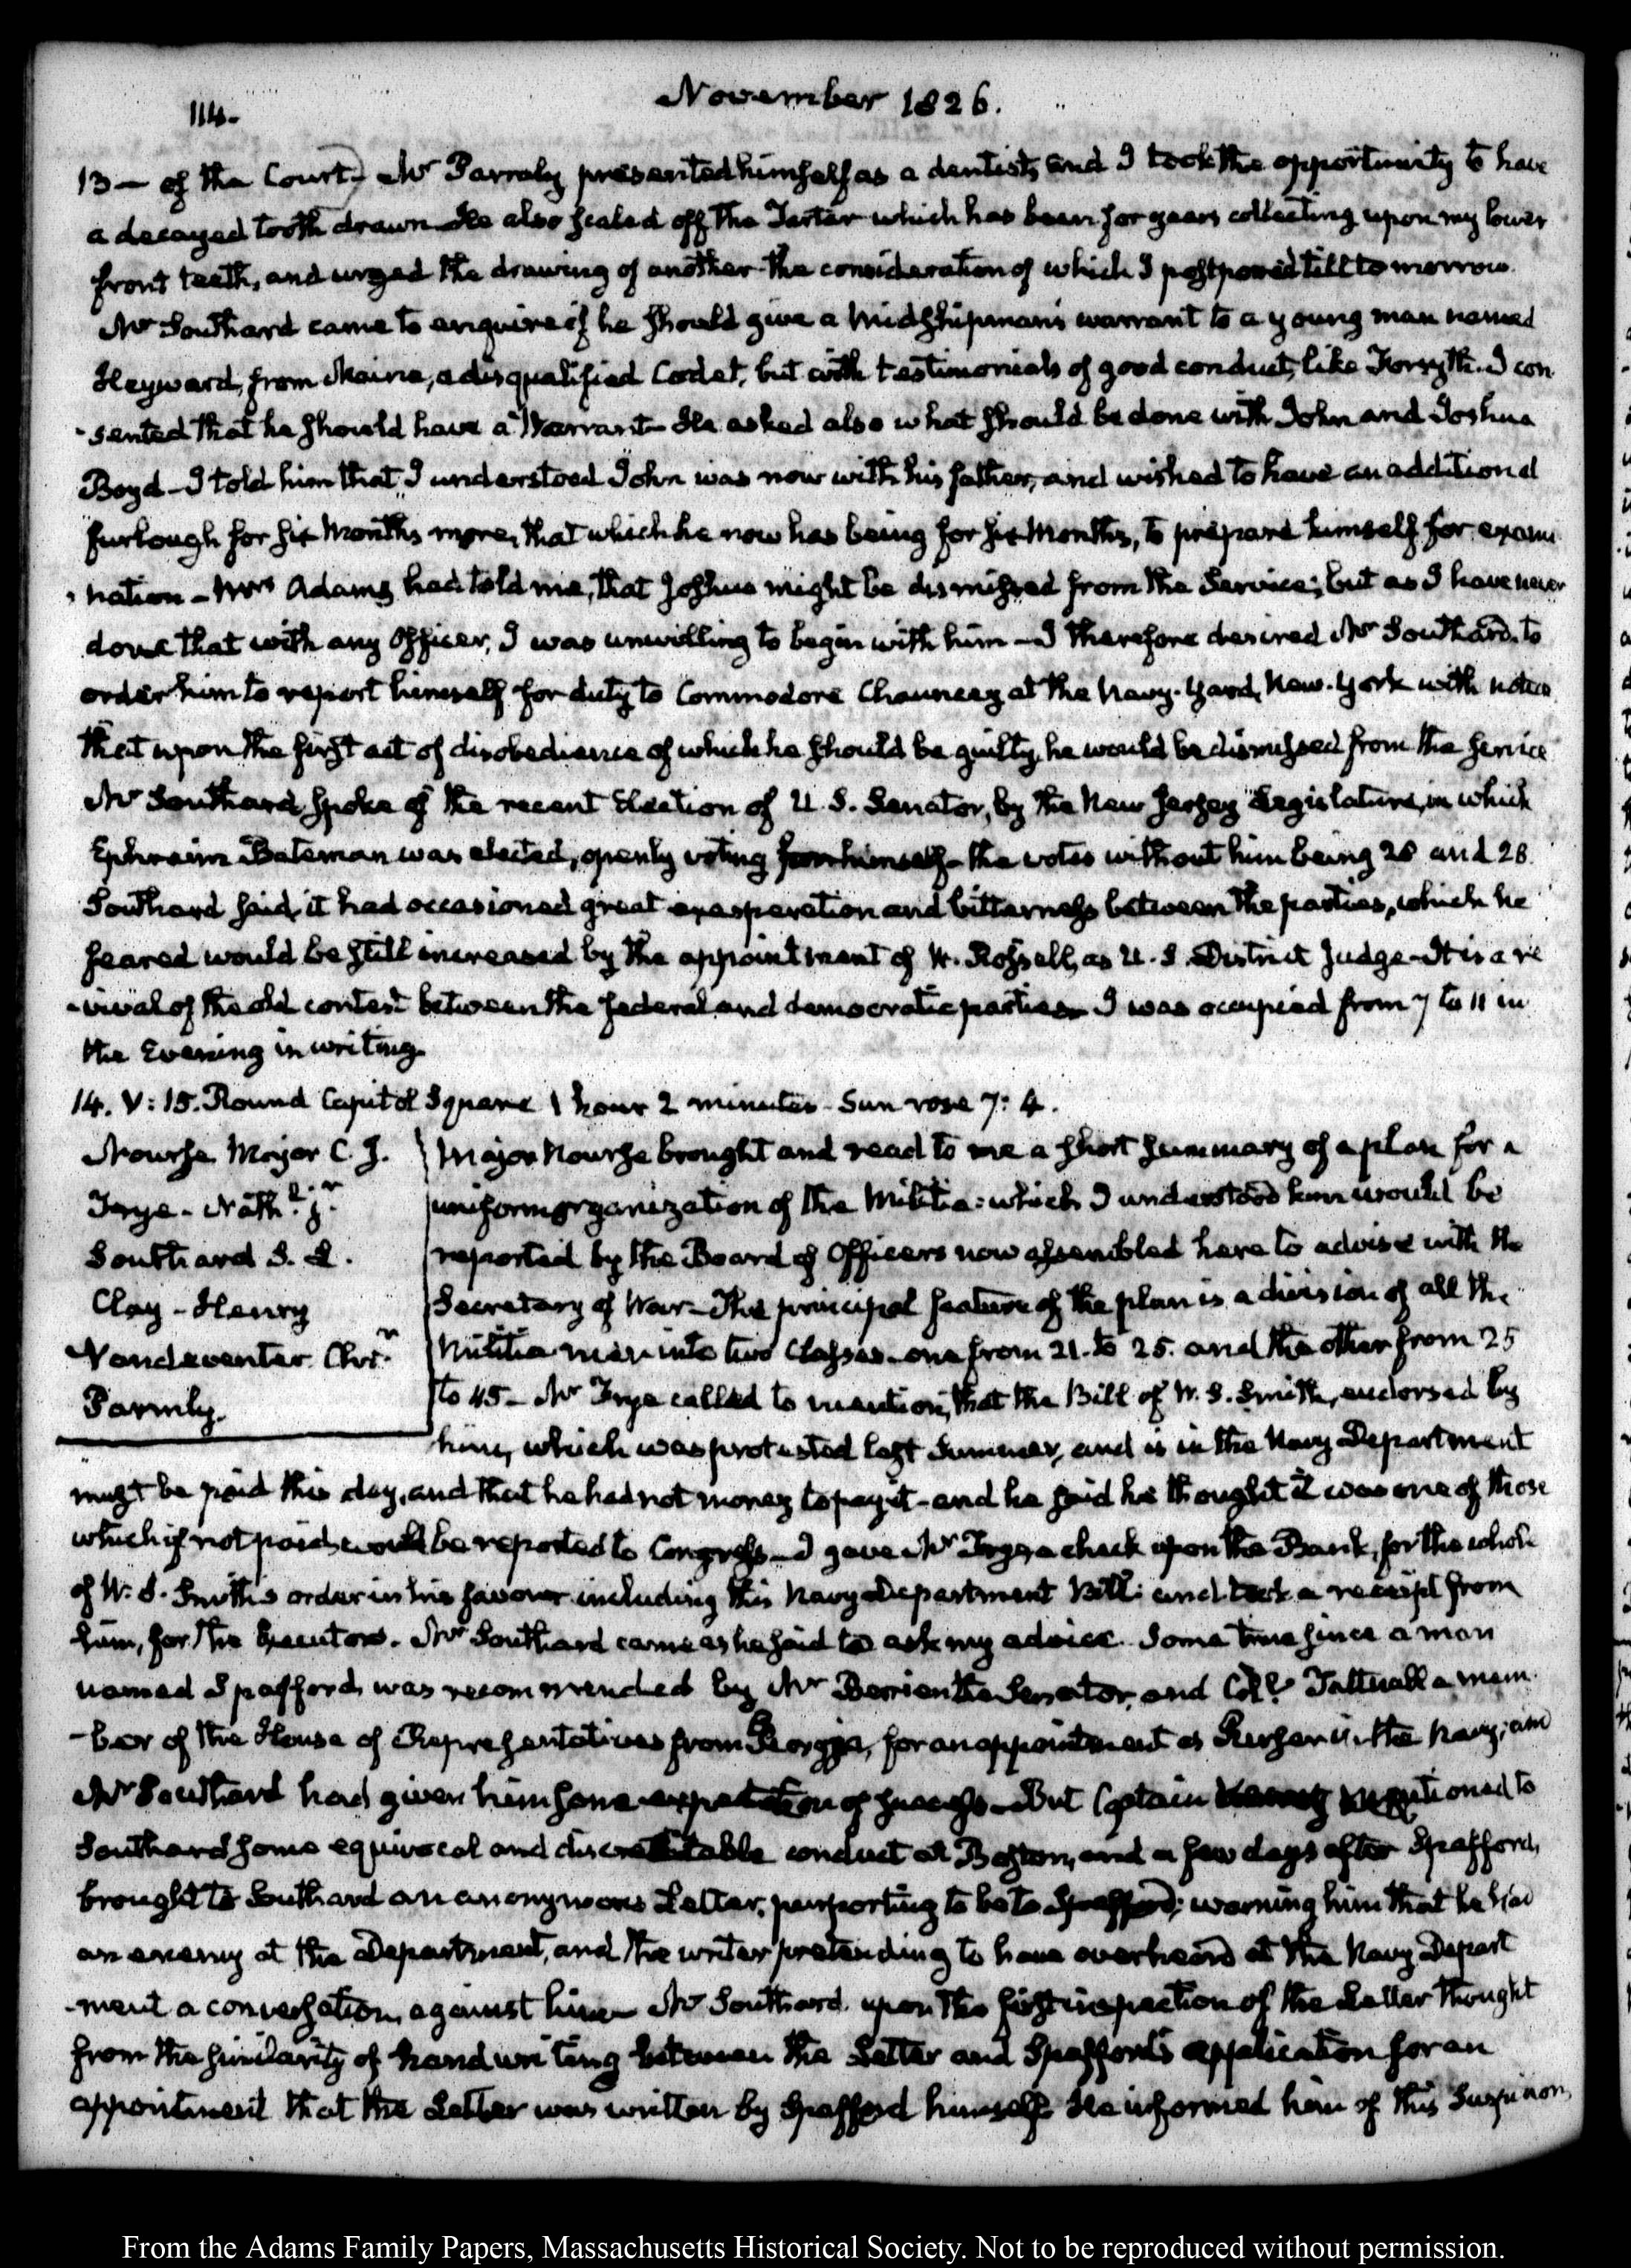 114.
November 1826.
13 — of the Court. Mr Parmly presented himself as a dentist, and I took the opportunity to have
a decayed tooth drawn. He also scaled off the Tartar which has been for years collecting upon my lower
front teeth, and urged the drawing of another the consideration of which I postponed till to morrow.
Mr Southard came to enquire if he should give a Midshipman's warrant to a young man named
Heyward, from Maine, a disqualified Cadet, but with testimonials of good conduct, like Forsyth. I con-
-sented that he should have a Warrant— He asked also what should be done with John and Joshua
Boyd— I told him that I understood John was now with his father, and wished to have an additional
furlough for six Months more, that which he now has being for six Months, to prepare himself for exami-
-nation— Mrs Adams had told me, that Joshua might be dismissed from the Service; but as I have never
done that with any Officer, I was unwilling to begin with him— I therefore desired Mr Southard to
order him to report himself for duty to Commodore Chauncey at the Navy-Yard, New-York with notice
that upon the first act of disobedience of which he should be guilty, he would be dismissed from the service
Mr Southard spoke of the recent Election of U.S. Senator, by the New Jersey Legislature, in which
Ephraim Bateman was elected, openly voting for himself— the votes without him being 28 and 28.
Southard said, it had occasioned great exasperation and bitterness between the parties, which he
feared would be still increased by the appointment of W. Rossell, as U.S. District Judge— It is a re
-vival of the old contest between the federal and democratic parties— I was occupied from 7 to 11 in
the Evening in writing.
14. V:15. Round Capitol Square 1 hour 2 minutes— Sun rose 7:4.
Nourse Major C. J.
Frye— Nathl. jr.
Southard S. L.
Clay— Henry
Vandeventer Chrr.
Parmly.
Major Nourse brought and read to me a short summary of a plan for a
uniform organization of the Militia: which I understood him would be
reported by the Board of Officers now assembled here to advise with the
Secretary of War— The principal feature of the plan is a division of all the
Militia men into two Classes— one from 21. to 25. and the other from 25
to 45— Mr Frye called to mention, that the Bill of W. S. Smith, endorsed by
him, which was protested last Summer, and is in the Navy Department
must be paid this day, and that he had not money to pay it— and he said he thought it was one of those
which if not paid, would be reported to Congress— I gave Mr Frye a check upon the Bank, for the whole
of W. S. Smith's order in his favour including this Navy Department Bill: and took a receipt from
him, for the Executors. Mr Southard came as he said to ask my advice. Some time since a man
named Spafford, was recommended by Mr Berrien the Senator, and Coll. Tattnall a mem
-ber of the House of Representatives from Georgia, for an appointment as Purser in the Navy; and
Mr Southard had given him some expectation of success— But Captain mentioned to
Southard some equivocal and discreditable conduct at Boston, and a few days after Spafford,
brought to Southard an anonymous Letter, purporting to be to Spafford; warning him that he had
an enemy at the Department, and the writer pretending to have overheard at the Navy Depart
-ment a conversation, against him— Mr Southard upon the first inspection of the Letter thought
from the similarity of hand writing between the Letter and Spafford's application for an
appointment that the Letter was written by Spafford himself. He informed him of this suspicion,
From the Adams Family Papers, Massachusetts Historical Society. Not to be reproduced without permission.